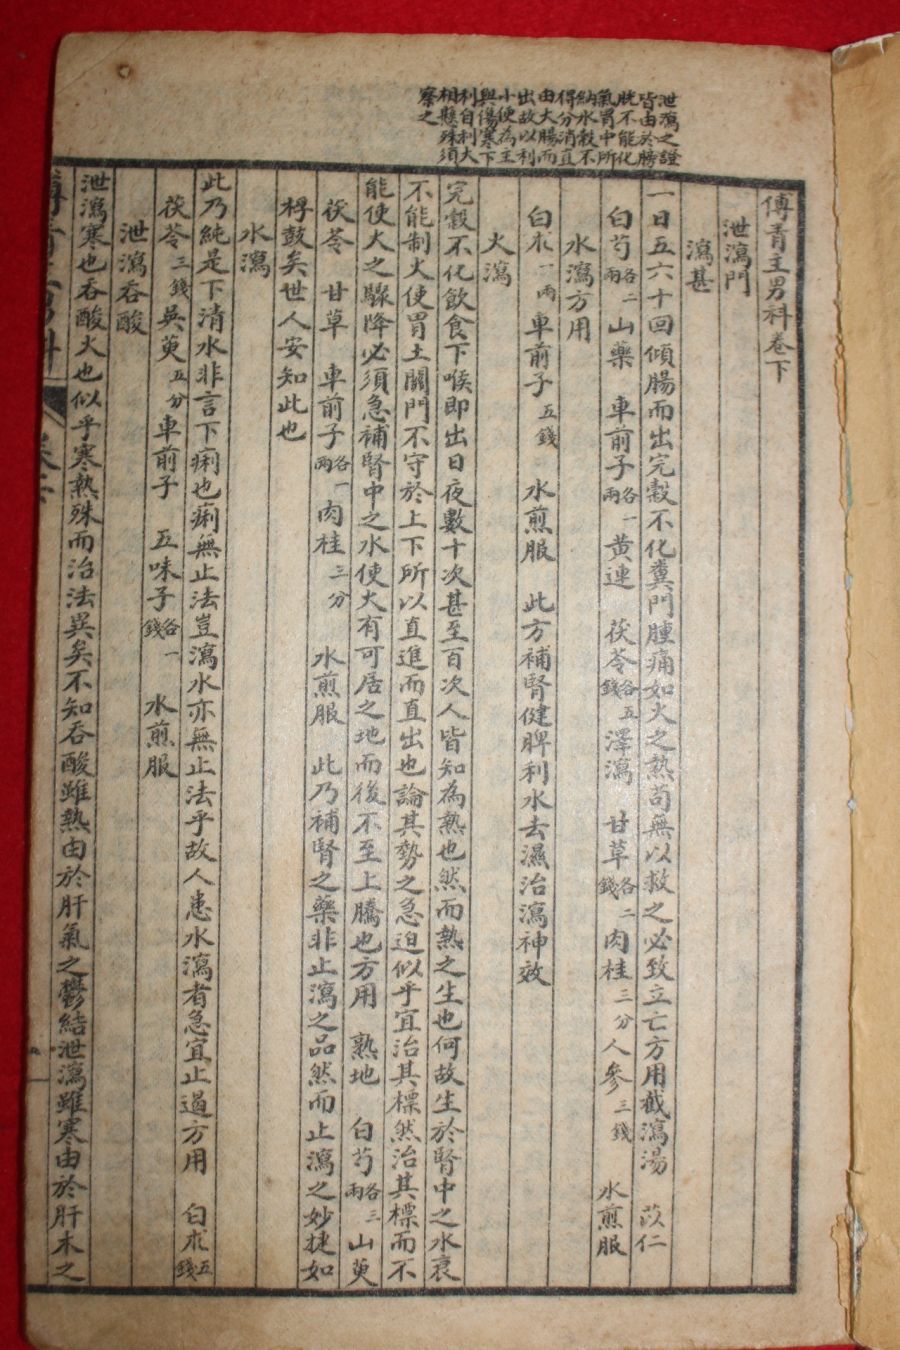 泄瀉之證
皆由於膀
胱不能化
氣胃中所
納水穀不
得分消直
由大腸而
出故以利
小便為主
與傷寒下
利自利大
相懸殊須
察之
傅青主男科卷下
泄瀉門
瀉甚
一日五六十回傾腸而出完穀不化糞門腫痛如火之熱苟無以救之必致立亡方用截瀉湯 苡仁
白芍各二兩 山藥 車前子各一兩 黄連 茯苓各五錢 澤瀉 甘草各二錢 肉桂三分 人參三錢 水煎服
水瀉方用
白朮一兩 車前子五錢 水煎服 此方補腎健脾利水去濕治瀉神效
火瀉
完穀不化飲食下喉即出日夜數十次甚至百次人皆知為熱也然而熱之生也何故生於腎中之水衰
不能制火使胃土關門不守於上下所以直進而直出也論其勢之急迫似乎宜治其標然治其標而不
能使火之驟降必須急補腎中之水使火有可居之地而後不至上騰也方用 熟地 白芍各三兩 山萸
茯苓 甘草 車前子各一兩 肉桂三分 水煎服 此乃補腎之藥非止瀉之品然而止瀉之妙捷如
桴鼓矣世人安知此也
水瀉
此乃純是下清水非言下痢也痢無止法豈瀉水亦無止法乎故人患水瀉者急宜止遏方用 白朮五錢
茯苓三錢 吳萸五分 車前子 五味子各一錢 水煎服
泄瀉吞酸
泄瀉寒也吞酸火也似乎寒熱殊而治法異矣不知吞酸雖熱由於肝氣之鬱結泄瀉雖寒由於肝木之